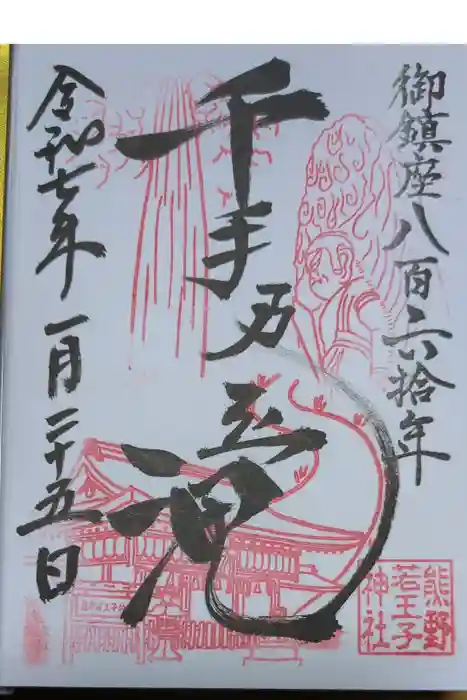 御鎮座八百六拾年
千手乃滝
令和七年一月二十五日
熊野
若王子
神社